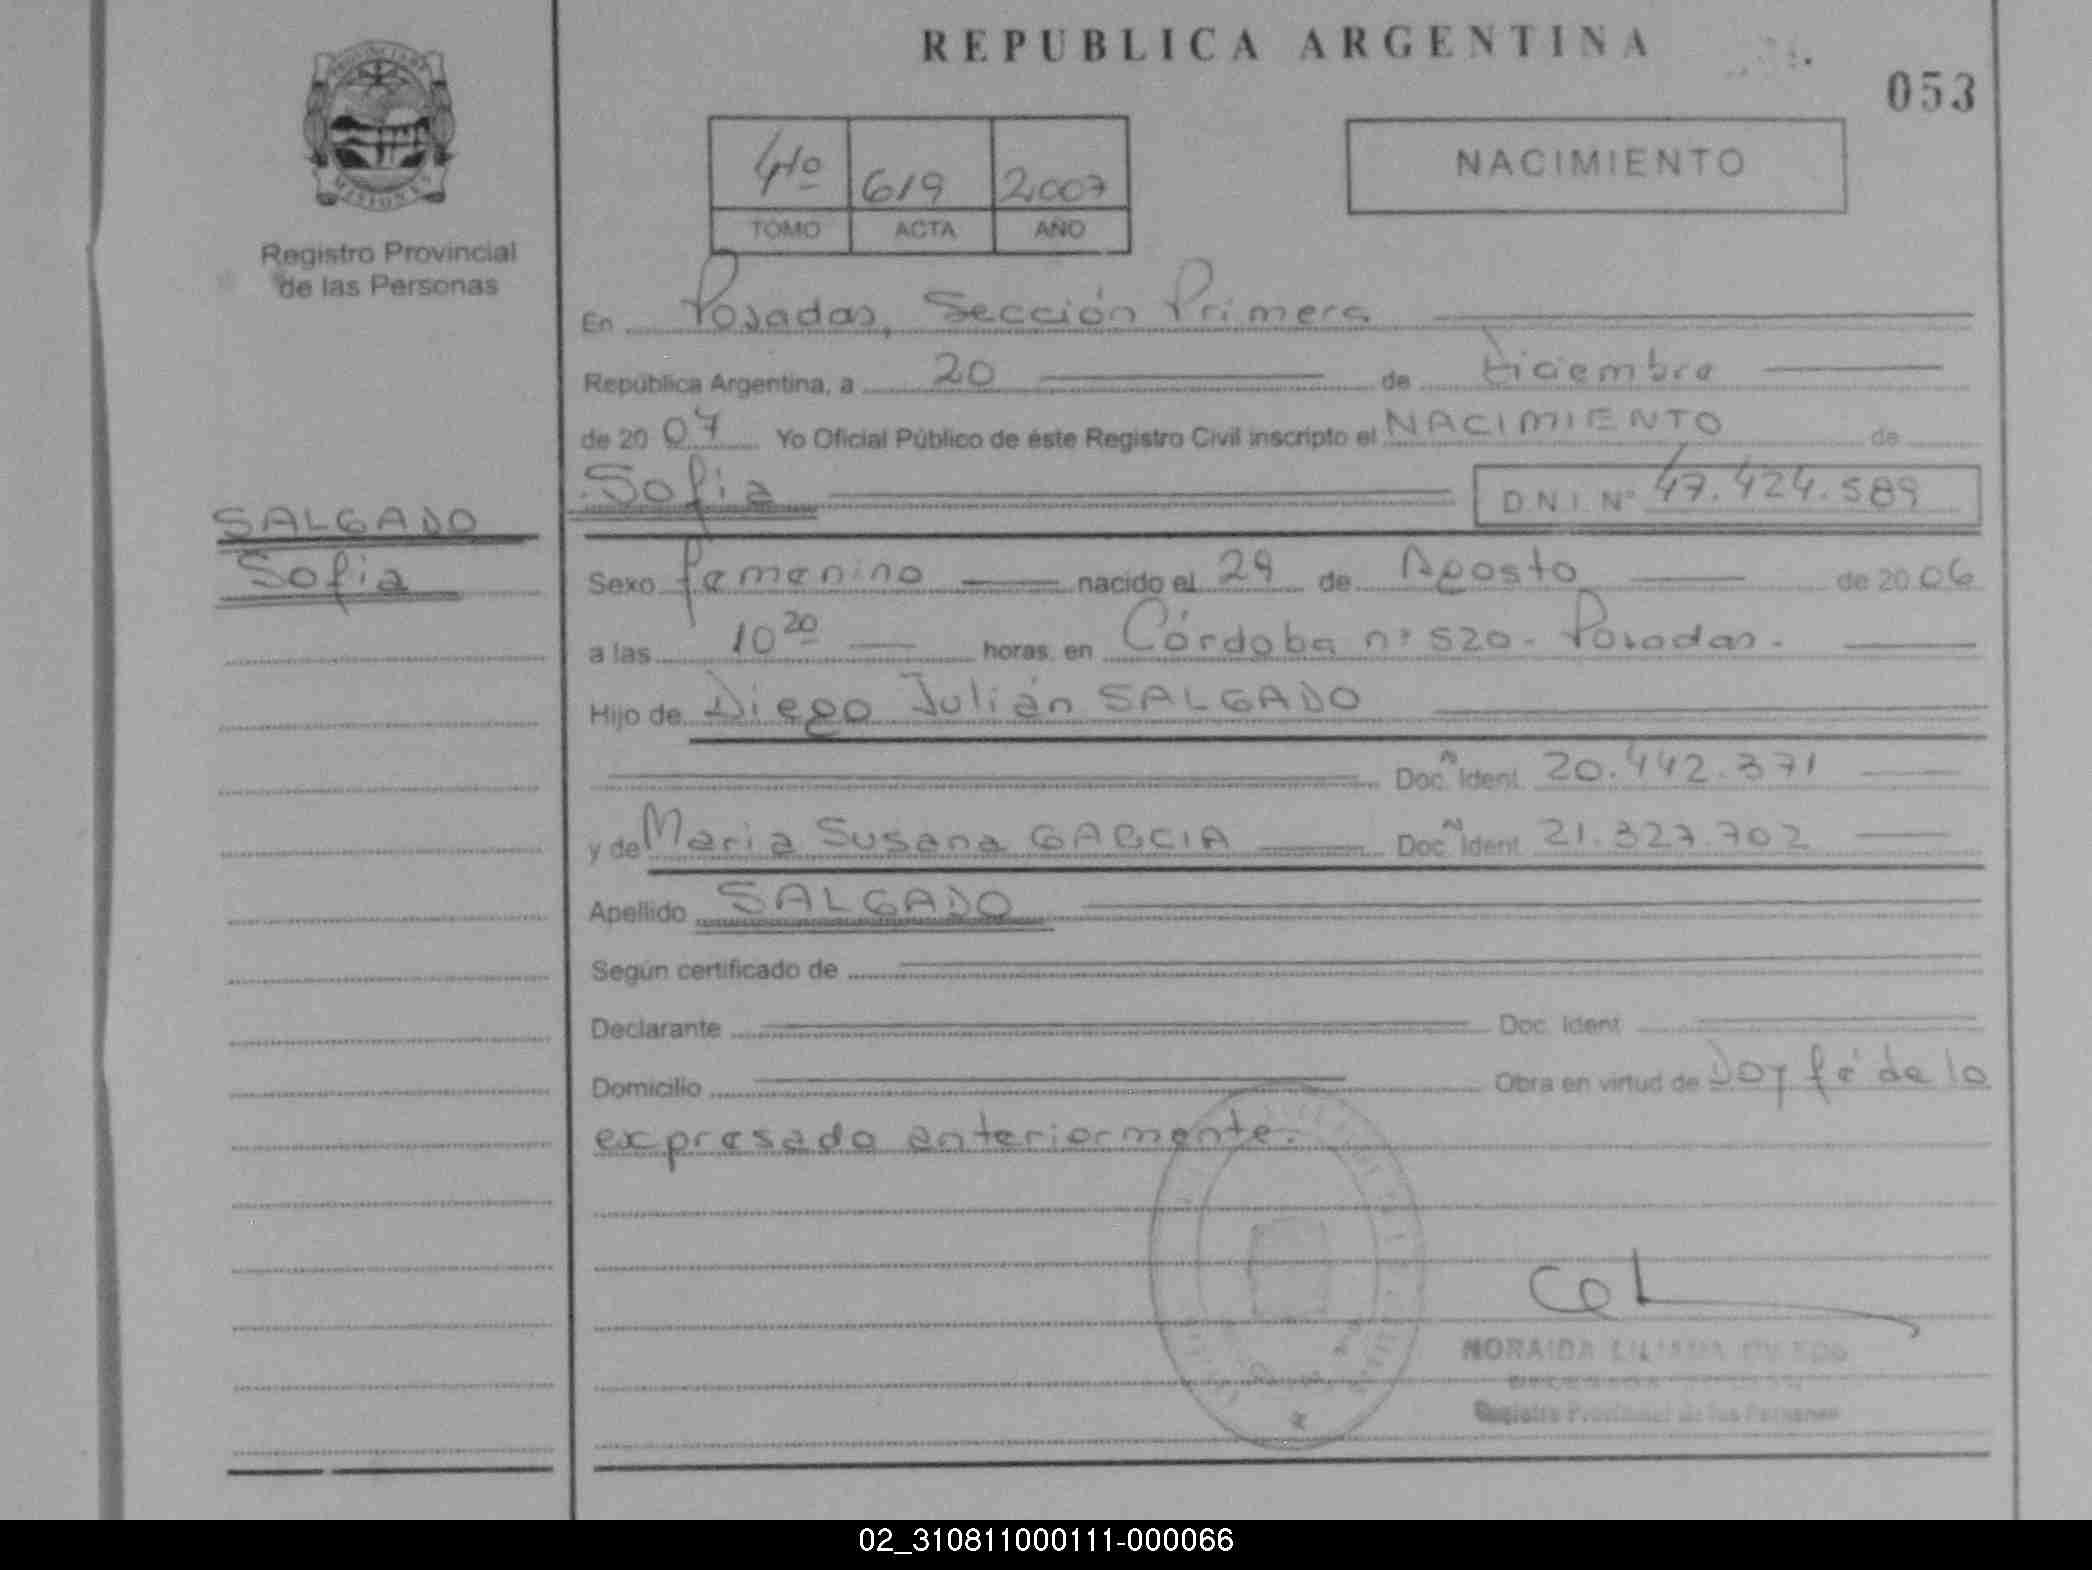 REPUBLICA ARGENTINA
053
PROVINCIA DE
MISIONES
Registro Provincial
de las Personas
4to 619 2007
TOMO ACTA AÑO
NACIMIENTO
En Posadas, Sección Primera
República Argentina, a 20 de Diciembre
de 2007 Yo Oficial Público de éste Registro Civil inscripto el NACIMIENTO de
Sofia D.N.I. Nº 47.424.589
SALGADO
Sofia
Sexo femenino nacido el 29 de Agosto de 2006
a las 10 20 horas, en Córdoba nº 520- Posadas.
Hijo de Diego Julián SALGADO
Doc. Ident. 20.442.371
y de Maria Susana GARCIA Doc. Ident. 21.327.702
Apellido SALGADO
Según certificado de
Declarante Doc. Ident.
Domicilio Obra en virtud de Doy fé de lo
expresado anteriormente.
NORAIDA LILIANA
Registro Provincial de las Personas
02_310811000111-000066